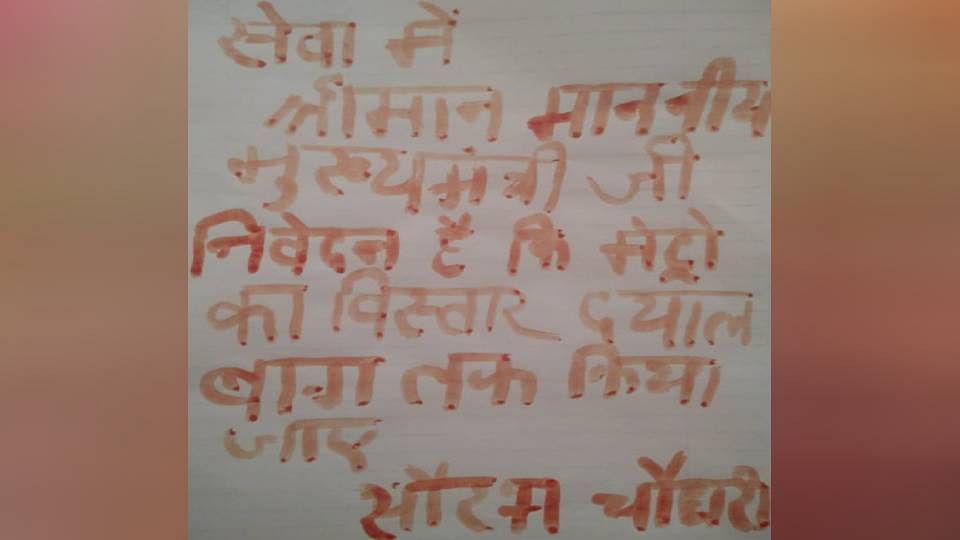 सेवा में
श्रीमान माननीय
मुख्यमंत्री जी
निवेदन है कि मेट्रो
का विस्तार दयाल
बाग तक किया
जाए
सौरभ चौधरी